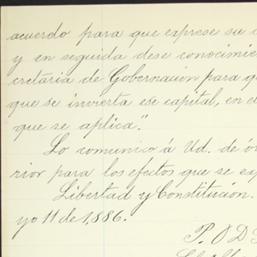 acuerdo para que exprese su c
y en seguida dese conocimie
cretaria de Gobernacion para q
que se invierta ese capital, en e
que se aplica".
Lo comunico á Ud. de ór
rior para los efectos que se ex
Libertad y Constitución.
yo 11 de 1,886.
P. O D